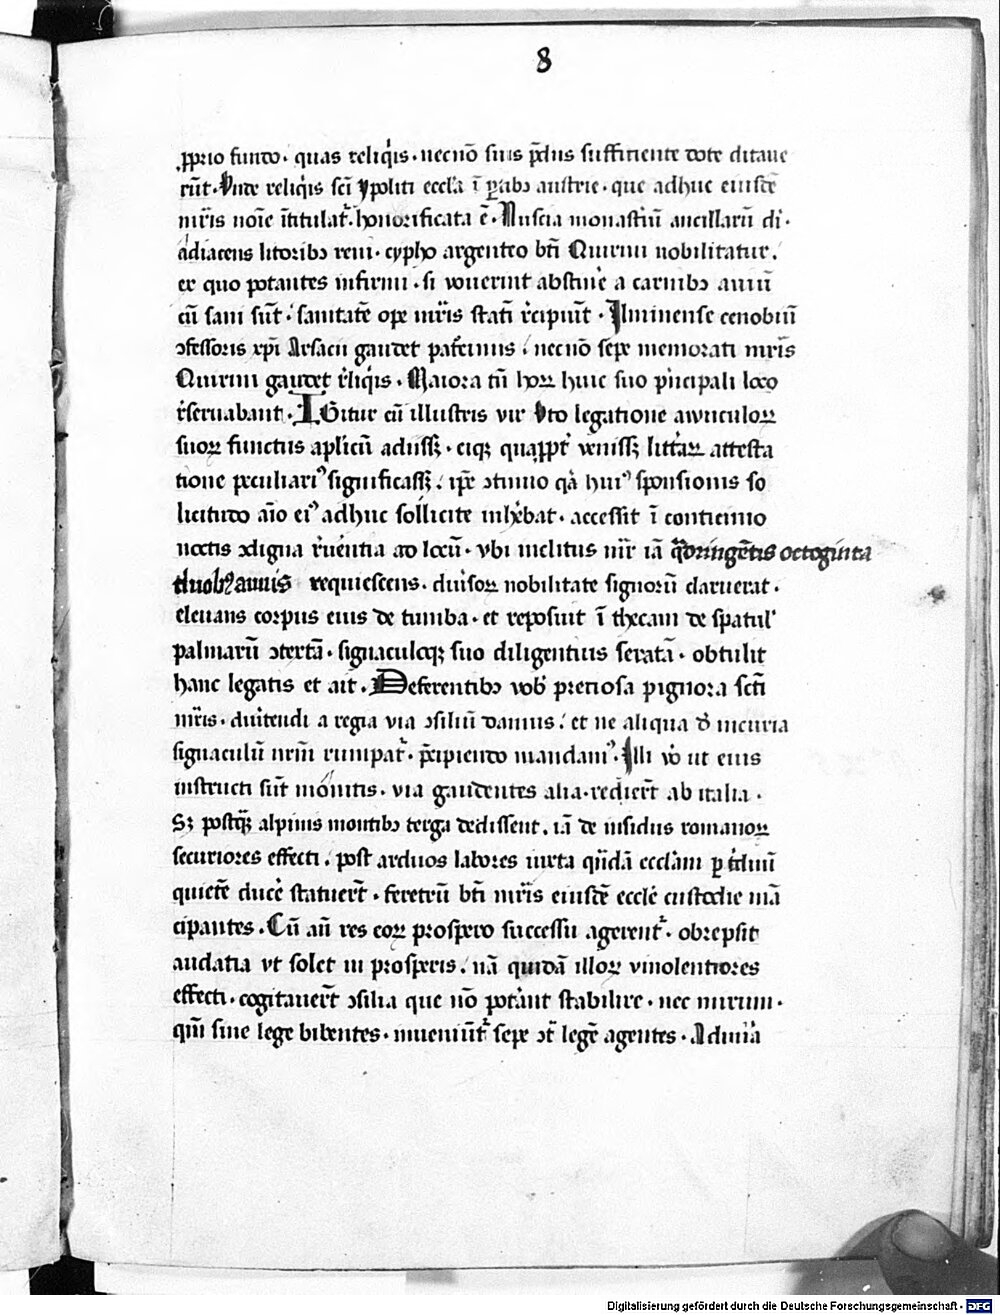 8
ꝓprio fundo · quas reliq̇is · necnō suis p̄diis sufficiente dote ditaue
rūt · Unde reliq̇is sc̄i ypoliti eccl̄a ī ꝑtibꝫ austrie · que adhuc eiusdē
mr̄is noīe ītitulat᷑ · honorificata ē · Nuscia monast̾iū ancillarū dī ·
adiacens litoribꝫ reni · cypho argenteo bt̄i Quirini nobilitatur ·
ex quo potantes infirmi · si vouerint abstin̾e a carnibꝫ auiū
cū sani sūt · sanitatē ope mr̄is statī r̾cipiūt · Ilminense cenobiū
ꝯfessoris xp̄i Arsacii gaudet pat̾ciniis · necnō sepe memorati mr̄is
Quirini gaudet r̾liq̇is · Maiora tn̄ hoꝝ huic suo ṗncipali loco
r̾seruabant · IGitur cū illustris vir Uto legatione auunculoꝝ
suoꝝ functus aplicū adiissꝫ · eiqꝫ quaꝓpt̾ venissꝫ litt̾aꝝ attesta
tione peculiariꝰ significassꝫ · ip̄e ꝯtinuo q̇a huiꝰ sponsionis so
licitudo aīo eiꝰ adhuc sollicite inh̾ebat · accessit ī conticinio
noctis ꝯdigna r̾uerentia ad locū · vbi inclitus mr̄ iā q̇dringētis octoginta
duobꝫ annis requiescens · diu̾soꝝ nobilitate signorū claruerat ·
eleuans corpus eius de tumba · et reposuit ī thecam de spatul'
palmarū ꝯtextā · signaculoqꝫ suo diligentius seratā · obtulit
hanc legatis et ait · Deferentibꝫ vob̾ preciosa pignora sc̄ti
mr̄is · diu̾tendi a regia via ꝯsiliū damus · et ne aliqua de incuria
signaculū nr̄m rumpat᷑ · p̄cipiendo mandamꝰ · Illi v̾o ut eius
instructi sūt mōnitis · via gaudentes alia · redier̄t ab italia ·
Sꝫ postq̄ꝫ alpinis montibꝫ terga dedissent · iā de insidiis romanoꝝ
securiores effecti · post arduos labores iuxta q̄ndā eccl̄am ꝑ t̾duū
quietē duc̾e statuer̄t · feretrū bt̄i mr̄is eiusdē eccl̄e custodie mā
cipantes · Cū aū res eoꝝ prospero successu agerent᷑ · obrepsit
audatia vt solet in prosperis · nā quidā illoꝝ vinolentiores
effecti · cogitauer̄t ꝯsilia que nō pot̾ant stabilire · nec mirum ·
qm̄ sine lege bibentes · inueniūt᷑ sepe ꝯt̾ legē agentes · Adiuīa
Digitalisierung gefördert durch die Deutsche Forschungsgemeinschaft - DFG